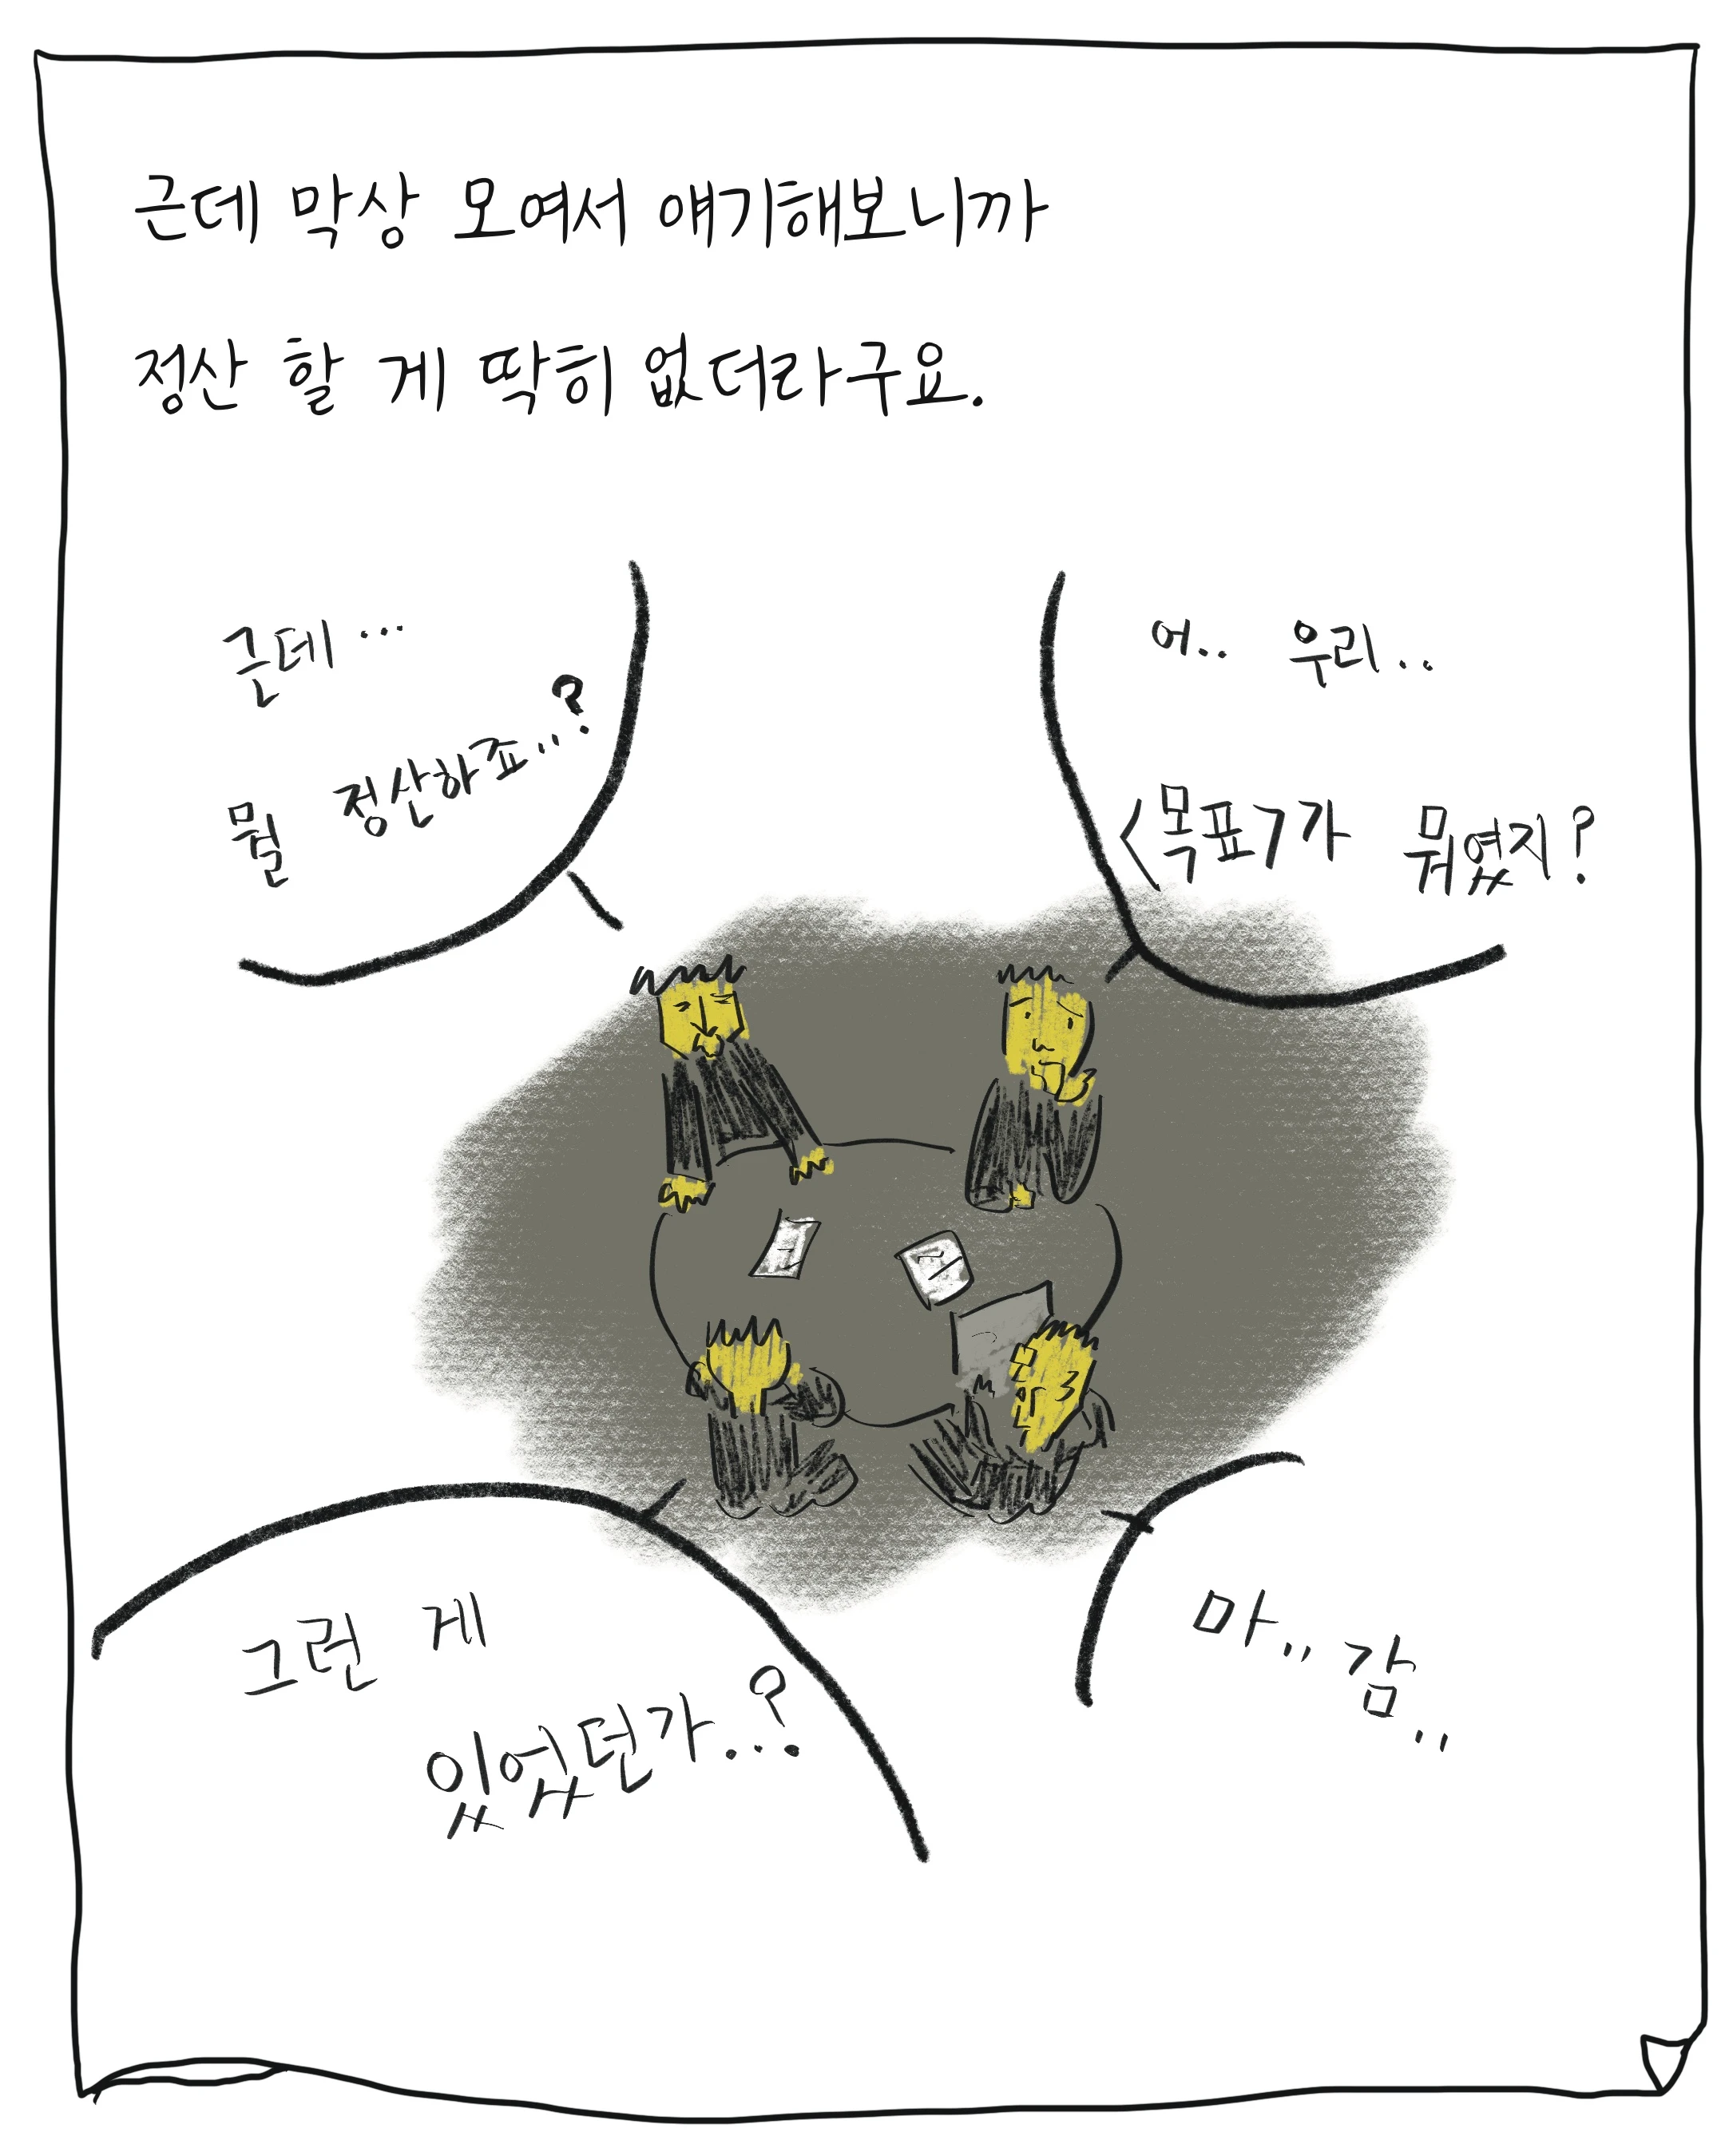 근데 막상 모여서 얘기해보니까
정산 할 게 딱히 없더라구요.
근데...
뭘 정산하죠..?
어.. 우리..
<목표>가 뭐였지?
그런 게
있었던가..?
마.. 감..